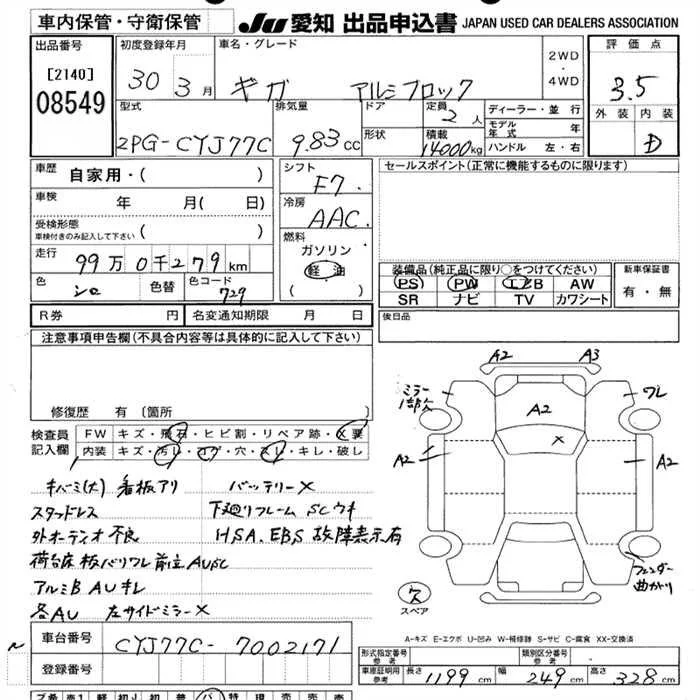 車内保管・守衛保管
JU 愛知 出品申込書 JAPAN USED CAR DEALERS ASSOCIATION
出品番号
[2140]
08549
初度登録年月
30年 3月
車名・グレード
ギガ アルミブロック
2WD
・
4WD
評価点
3.5
外装 内装
D
型式
2PG-CYJ77C
排気量
9.83cc
ドア
形状
定員
2人
積載
14000kg
ディーラー・並行
モデル年式 年
ハンドル 左・右
車歴
自家用・( )
車検
年 月( 日)
受検形態
車検付きのみ記入して下さい ( )
走行
99万0千279km
色
シロ
色替
色コード
729
シフト
F7
冷房
AAC
燃料
ガソリン
軽・油
( ・ )
セールスポイント(正常に機能するものに限ります)
装備品(純正品に限り○をつけてください)
PS PW エアB AW
SR ナビ TV カワシート
新車保証書
有・無
R券 円 名変通知期限 月 日
後日品
注意事項申告欄(不具合内容等は具体的に記入して下さい)
修復歴 有 [箇所
検査員
記入欄
FW キズ・飛石・ヒビ割・リペア跡・×要
内装 キズ・汚レ・コゲ・穴・スレ・キレ・破し
キバミ(大) 看板アリ バッテリー×
スタッドレス 下廻りフレーム SCウキ
外オーディオ不良 HSA.EBS 故障表示有
荷台床板バリワレ 前立AUSC
アルミB AUキレ
各AU 左サイドミラー×
A2 A3
ミラー
1部欠
ワレ
A2
×
A2
A2
フェンダー
曲がり
欠
スペア
A-キズ E-エクボ U-凹み W-補修跡 S-サビ C-腐食 XX-交換済
車台番号
CYJ77C-7002171
登録番号
形式指定番号
参考
類別区分番号
参考
車庫証明用
参考
長さ 1199cm 幅 249cm 高さ 328cm